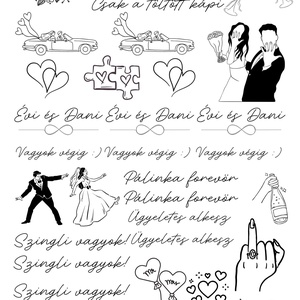 Csak a töltött kápi
Évi és Dani Évi és Dani Évi és Dani
Vagyok végig :) Vagyok végig :) Vagyok végig :)
Pálinka forevör
Pálinka forevör
Ügyeletes alkesz
Szingli vagyok! Ügyeletes alkesz
Szingli vagyok!
Szingli vagyok!
Mr. Mrs.